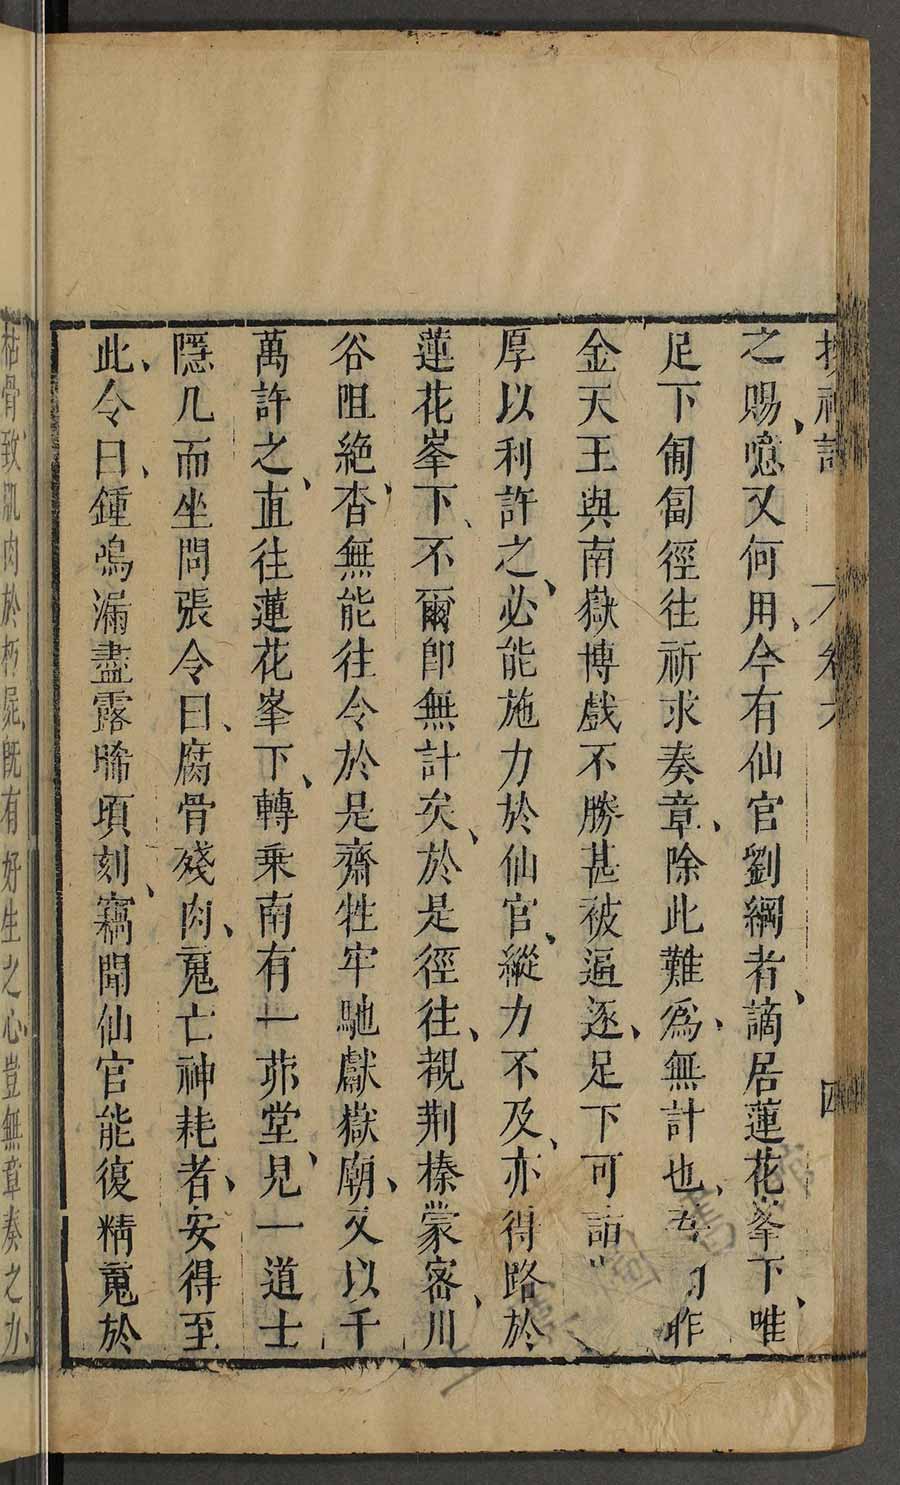 搜神記 卷六 四
之賜噫又何用今有仙官劉綱者謫居蓮花峯下唯
足下匍匐徑往祈求奏章除此難爲無計也吾昨
金天王與南嶽博戲不勝甚被逼逐足下可詣
厚以利許之必能施力於仙官縱力不及亦得路於
蓮花峯下不爾卽無計矣於是徑往覩荆榛蒙密川
谷阻絶杳無能往令於是齋牲牢馳獻嶽廟又以千
萬許之直往蓮花峯下轉乘南有一茆堂見一道士
隱几而坐問張令曰腐骨殘肉䰟亡神耗者安得至
此令曰鍾鳴漏盡露晞頃刻竊聞仙官能復精䰟於
枯骨致肌肉於朽屍旣有好生之心豈無章奏之力